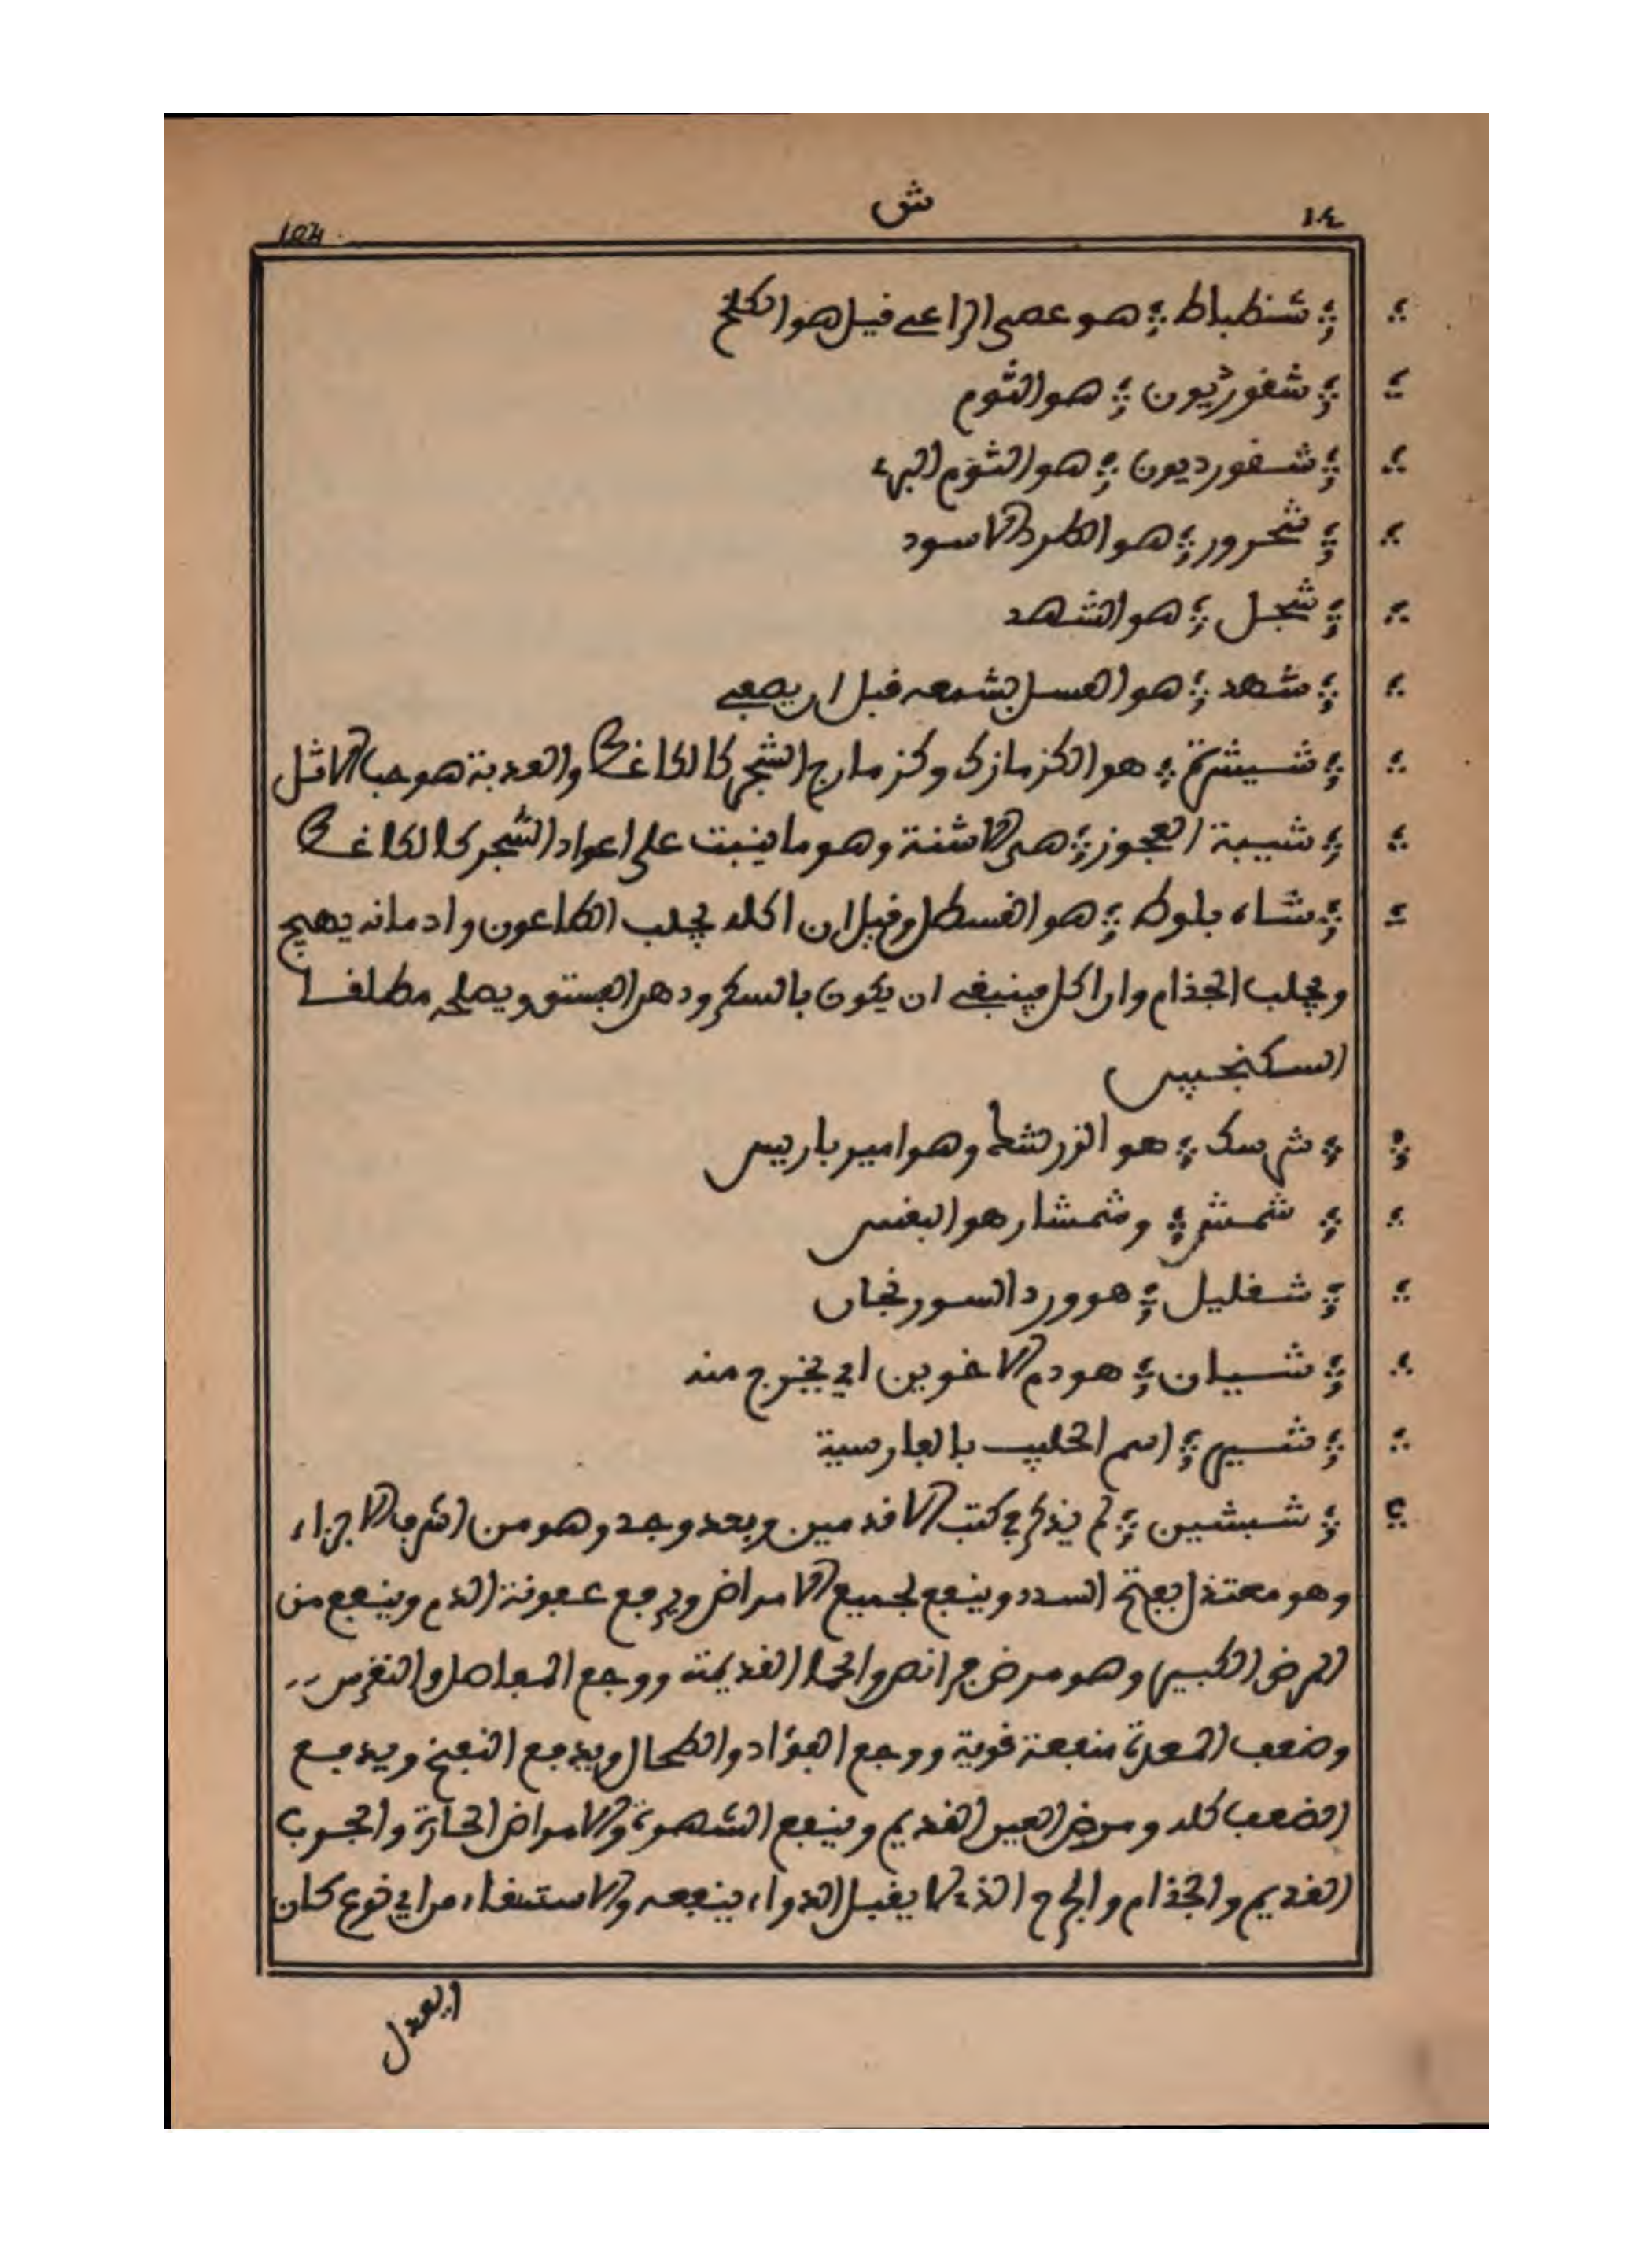 ١٠٤ ش 104
شنطباط هو عصى الراعي قيل هو الكلخ
شقورديون هو الثوم
شقورديون هو الثوم البري
شحرور هو الطرد الاسود
شجل هو الشهد
شهد هو العسل بشمعه قبل ان يصفى
هو الكزمازك وكزمازج الشجر كالكاغط والعذبة هو حب الاثل
شيبة العجوز هي الاشنة وهو ما ينبت على اعواد الشجر كالكاغط
شاه بلوط هو القسطل وقيل ان اكله يجلب الطاعون وادمانه يهيج
ويجلب الجذام وان اكل فينبغي ان يكون بالسكر ودهن الفستق ويصلحه مطلقا
السكنجبين
شرسك هو الزرشك وهو امير باريس
شمش وشمشار هو البقس
شقليل هو ورد السورنجان
شيان هو دم الاخوين اي يخرج منه
شير اسم الحليب بالفارسية
شبشين لم يذكر في كتب الاقدمين وبعد وجد وهو من اشرف الاجزاء
وهو معتدل يفتح السدد وينفع لجميع الامراض ويرفع عفونة الدم وينفع من
المرض الكبير وهو مرض فرانص والحما القديمة ووجع المفاصل والنقرس
وضعف المعدة منفعة قوية ووجع الفؤاد والطحال ويدفع النفخ ويدفع
الضعف كله ومرض العين القديم وينفع الشهوة والامراض الحارة والجرب
القديم والجذام والجرح الذي لا يقبل الدواء ينفعه والاستسقاء من اي نوع كان